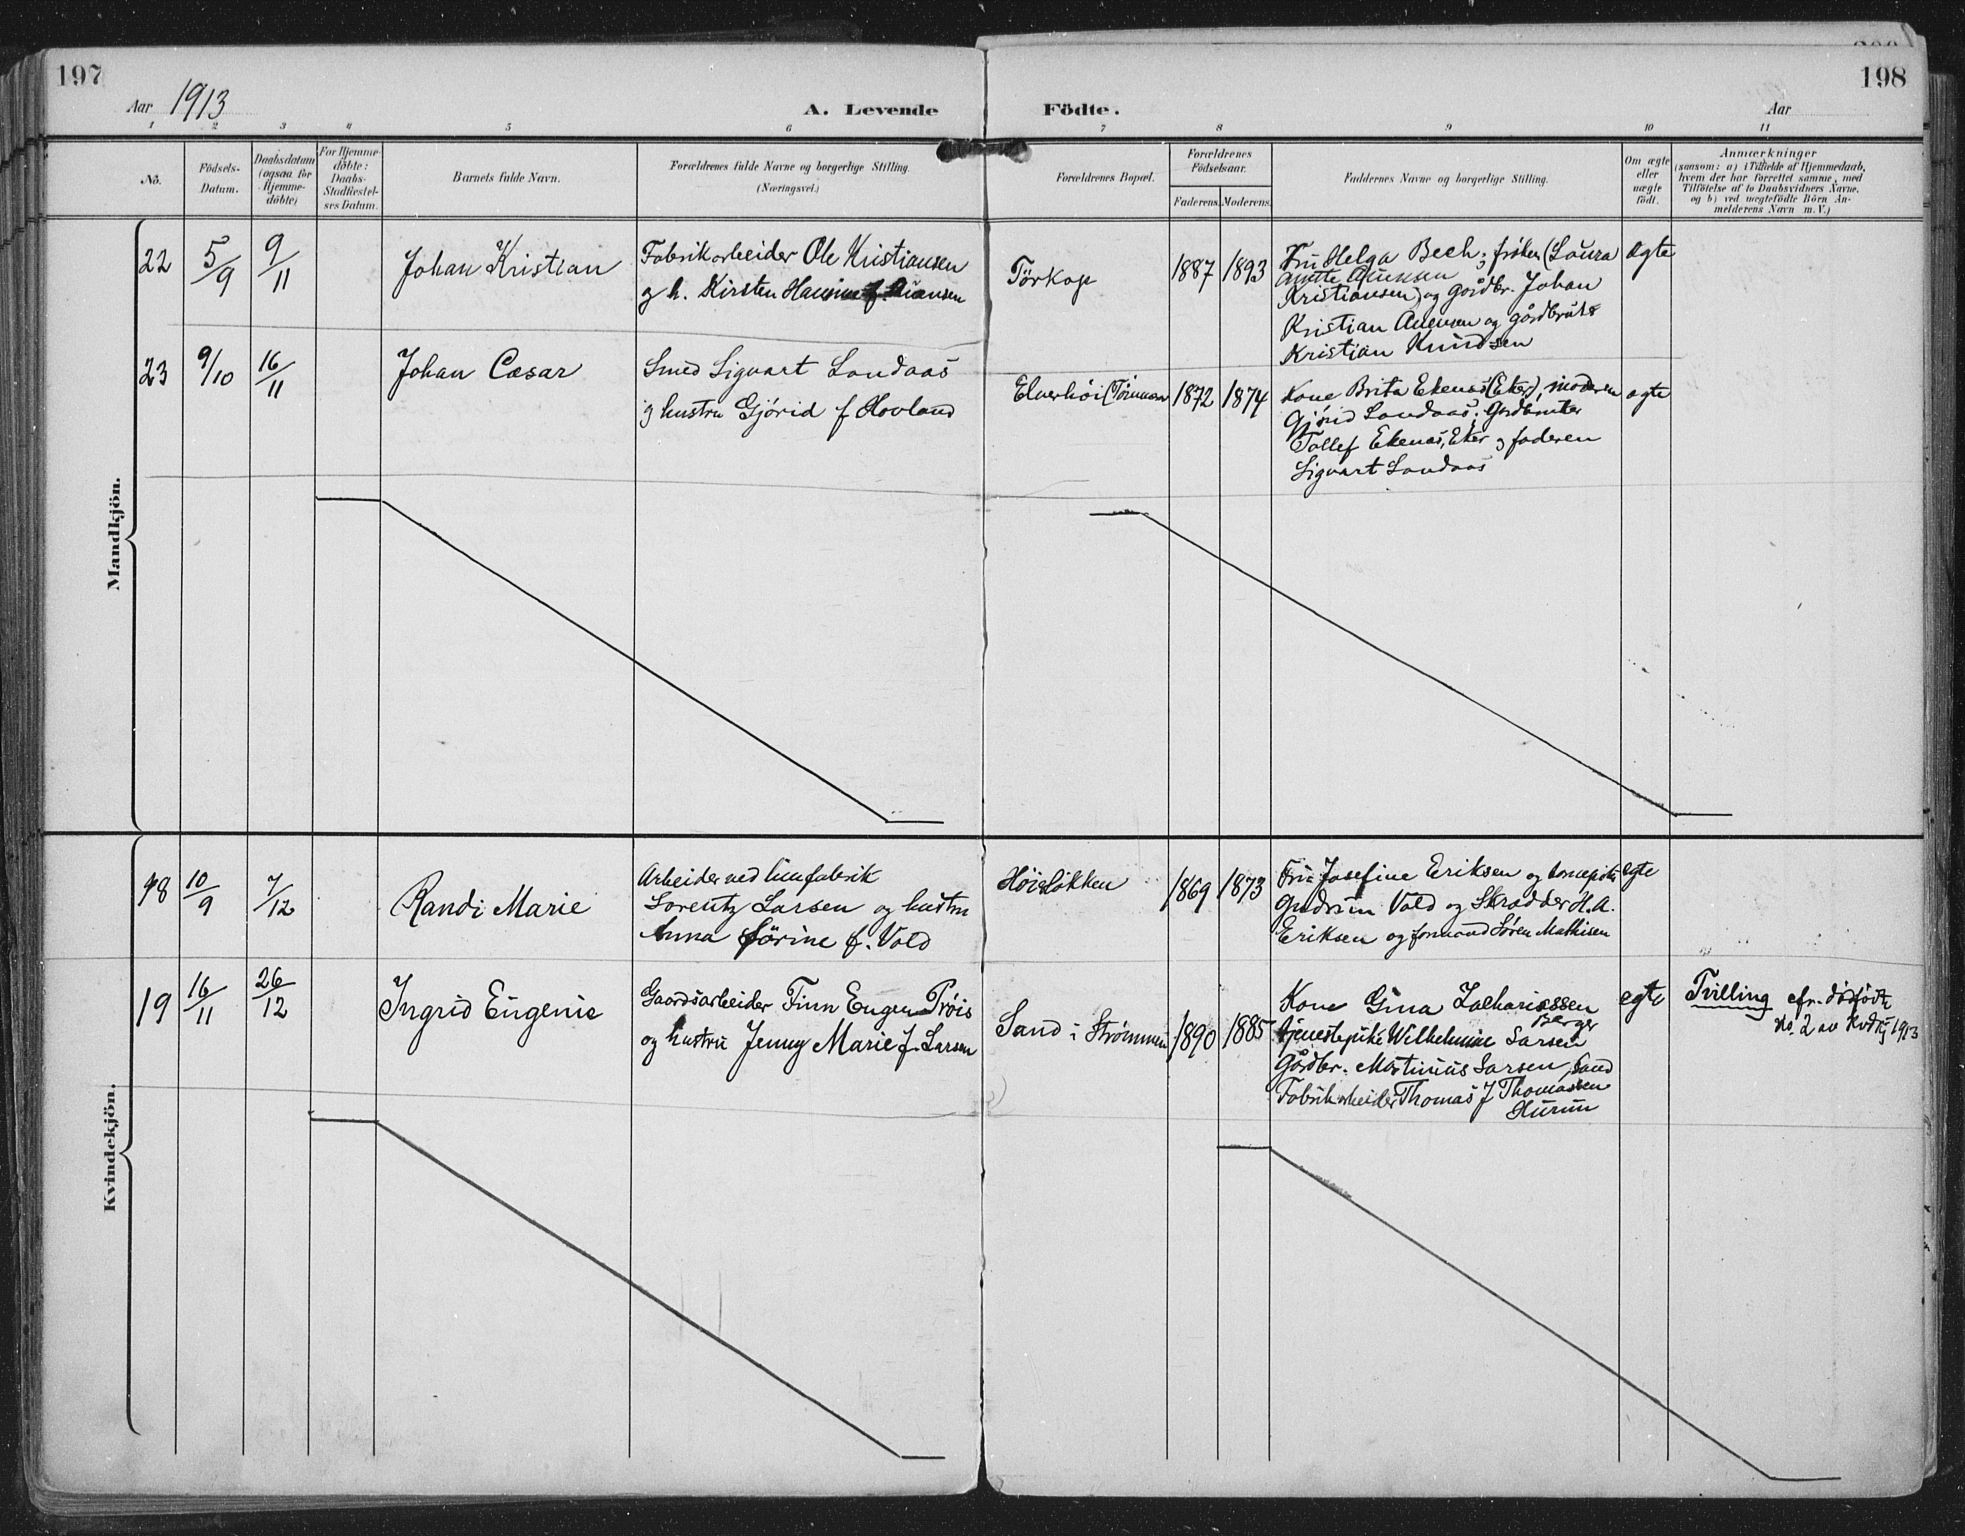 197
198
Aar 1913
A. Levende Födte.
Aar
1 2 3 4 5 6 7 8 9 10 11
No.
Födsels-
Datum.
Daabsdatum
(ogsaa for
Hjemme-
døbte)
For Hjemme-
døbte:
Daabs-
Stadfæstel-
ses Datum.
Barnets fulde Navn.
Forældrenes fulde Navne og borgerlige Stilling.
(Næringsvei.)
Forældrenes Bopæl.
Forældrenes
Födselsaar.
Faderens. Moderens.
Faddernes Navne og borgerlige Stilling.
Om ægte
eller
uægte
født.
Anmærkninger
(saasom: a) i Tilfælde af Hjemmedaab,
hvem der har forrettet samme, med
Tilföielse af to Daabsvidners Navne,
og b) ved uægtefødte Börn An-
melderens Navn m. V.)
Mandkjön.
22 5/9 9/11 Johan Kristian
Fabrikarbeider Ole Kristiansen
g h. Kirsten
Törkop 1887 1893
Fru Helga Bech; frøken (Laura
Anette
Kristiansen) og gårdbr. Johan
Kristian Anensen og gårdbruker
Kristian Knudsen
ægte
23 9/10 16/11 Johan Cæsar
Smed Sigvart Landaas
g hustru Gjórid f Hovland
Elverhöi 1872 1874
Kone Brita Ekenæs (Eker), moderen
Gjórid Landaas, Gårdbruker
Tollef Ekenæs, Eker g faderen
Sigvart Landaas
ægte
Kvindekjön.
18 10/9 7/12 Randi Marie
Arbeider ved limfabrik
Lorentz Larsen og hustru
Anna Sörine f. Vold
1869 1873
Fru Josefine Eriksen og
Gudrun Vold og Skrædder H. A.
Eriksen og formand Søren Mathisen
egte
19 16/11 26/12 Ingrid Eugenie
Gaardsarbeider Finn Eugen Prøis
og hustru Jenny Marie f. Larsen
Sand i Strømmen 1890 1885
Kone Gina Zachariassen
Berger
tjenestepike Wilhelmine Larsen
Gårdbr. Martinius Larsen, Sand
Fabrikarbeider Thomas J Thomassen
Hurum
egte
Tvilling cfr. dödfödte
No. 2 av Kvdkj 1913